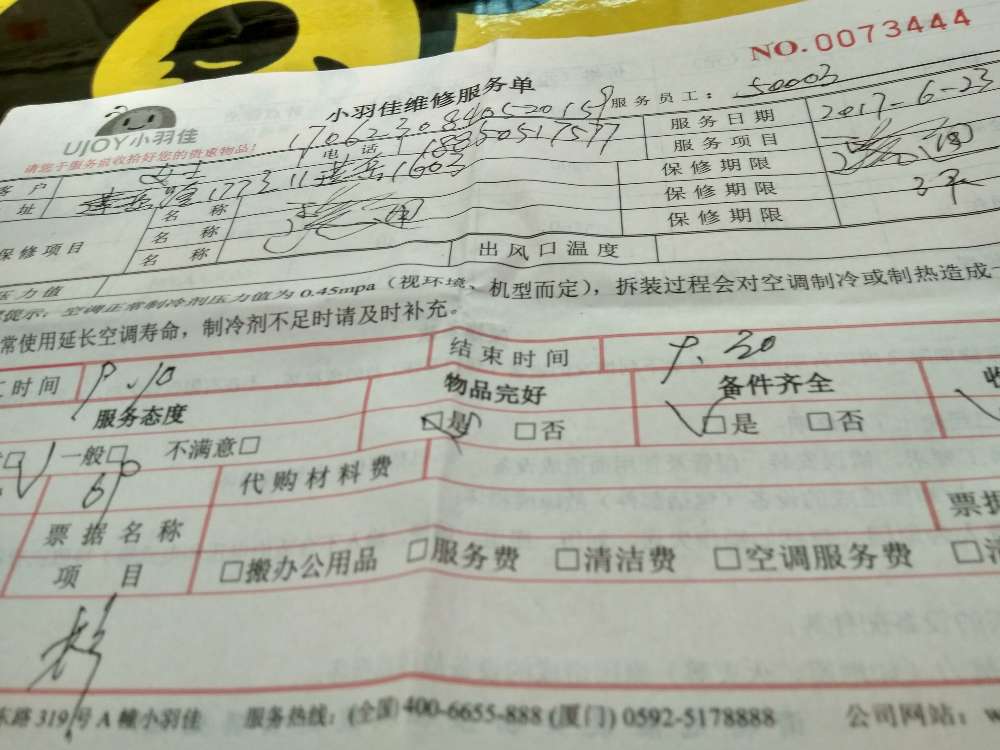 NO.0073444
小羽佳维修服务单
UJOY小羽佳
170623084052015
服务员工：50003
请您于服务验收拾好您的贵重物品！
电话
18250517577
服务日期
2017-6-23
客户
女士
服务项目
址
1773
1603
保修期限
保修项目
名称
保修期限
名称
保修期限
名称
压力值
出风口温度
提示：空调正常制冷剂压力值为0.45mpa（视环境、机型而定），拆装过程会对空调制冷或制热造成
常使用延长空调寿命，制冷剂不足时请及时补充。
时间
结束时间
9.30
服务态度
物品完好
备件齐全
一般□ 不满意□
□是 □否
□是 □否
代购材料费
票据名称
票据
项目
□搬办公用品 □服务费 □清洁费 □空调服务费
东路319号A幢小羽佳 服务热线：(全国)400-6655-888(厦门)0592-5178888 公司网站：w